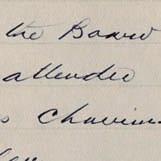 the Board
attended
s Chairm